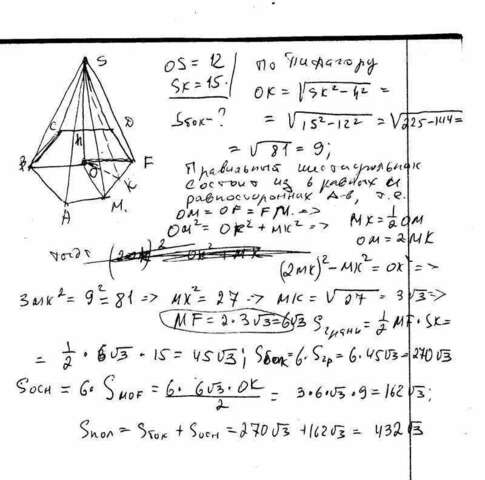 S
C
D
h
B
O
F
K
A
M
OS = 12
SK = 15
Sбок - ?
По Пифагору
OK = √SK² - h² =
= √15² - 12² = √225 - 144 =
= √81 = 9;
Правильный шестиугольник
состоит из 6 равных и
равносторонних Δ-в, т.е.
OM = OF = FM. =>
OM² = OK² + MK² => MK = 1/2 OM
OM = 2MK
тогда
(2MK)² - MK² = OK² =>
3MK² = 9² = 81 => MK² = 27 => MK = √27 = 3√3 =>
MF = 2 · 3√3 = 6√3 Sграни = 1/2 MF · SK =
= 1/2 · 6√3 · 15 = 45√3; Sбок = 6 · Sгр = 6 · 45√3 = 270√3
Sосн = 6 · SMOF = 6 · 6√3 · OK / 2 = 3 · 6√3 · 9 = 162√3;
Sпол = Sбок + Sосн = 270√3 + 162√3 = 432√3